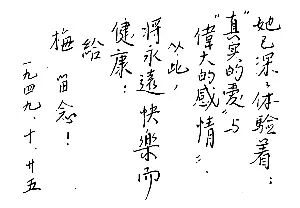 她已深深体验着：
“真实的爱”与
“偉大的感情”。
以此，
將永遠快樂而
健康！
給
梅 留念！
一九四九、十、廿五